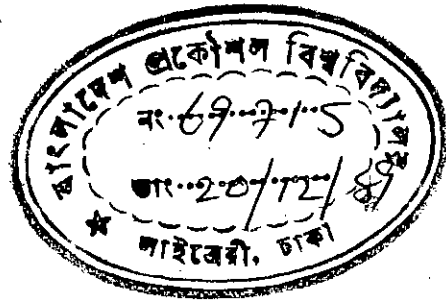 বাংলাদেশ প্রকৌশল বিশ্ববিদ্যালয়
নং..69715
তাং..20/12/
লাইব্রেরী, ঢাকা